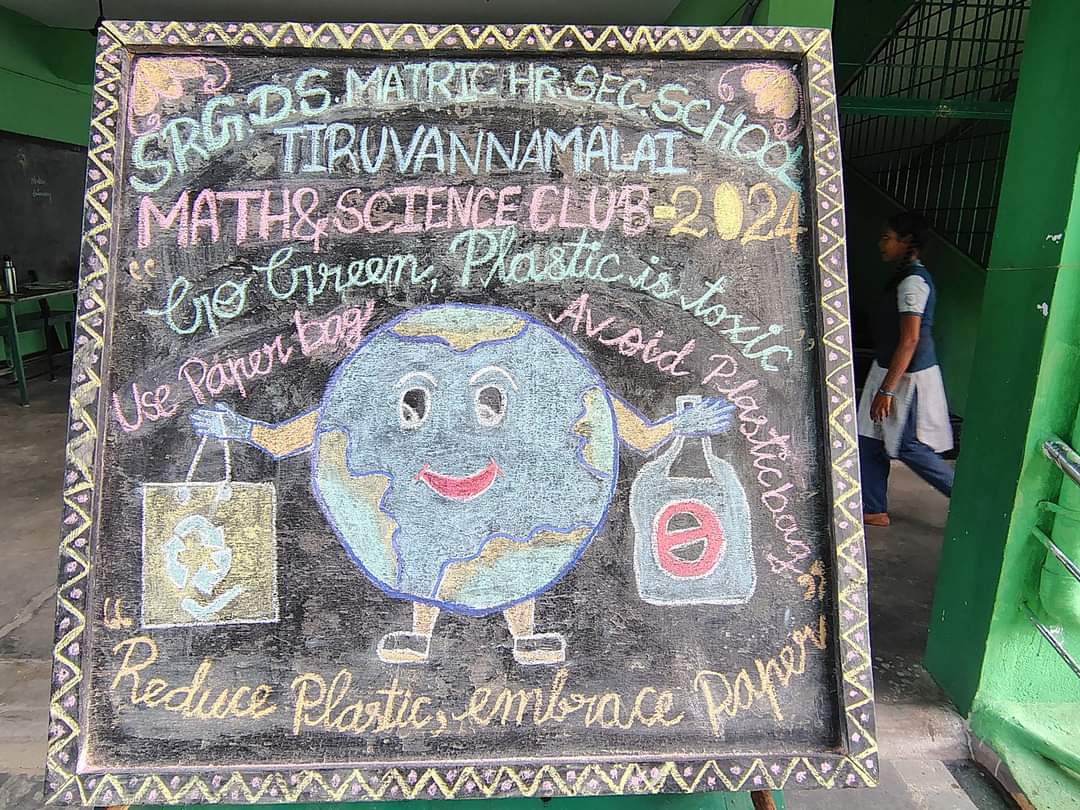 SRG.D.S. MATRIC HR. SEC. SCHOOL
TIRUVANNAMALAI
MATH & SCIENCE CLUB - 2024
"Go Green, Plastic is toxic"
Use Paper bag
Avoid Plastic bag
"Reduce Plastic, embrace Paper"